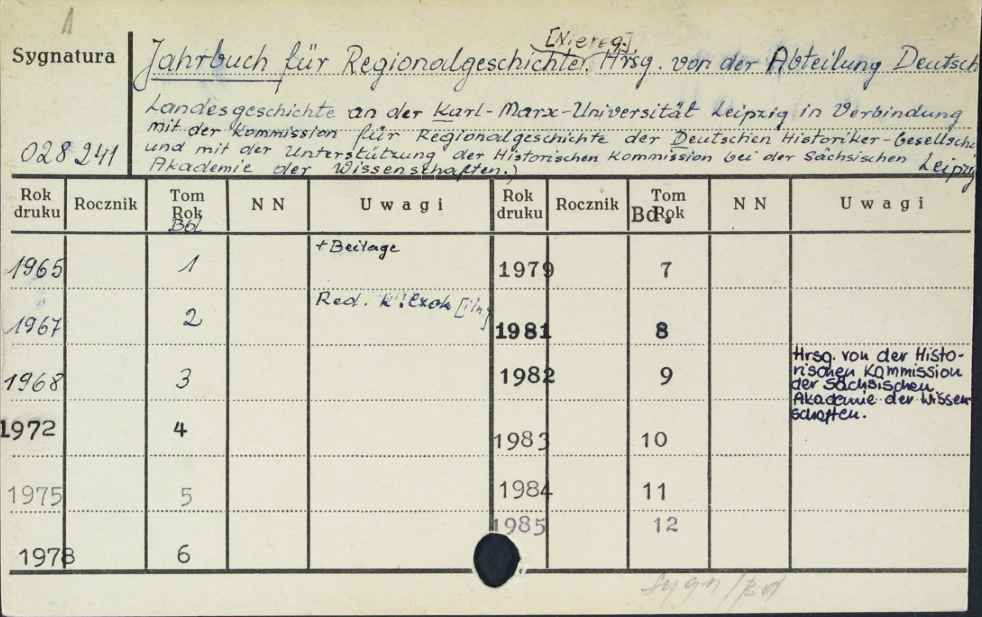 [Niereg.]
Sygnatura
Jahrbuch für Regionalgeschichte. Hrsg. von der Abteilung Deutsch
Landesgeschichte an der Karl-Marx-Universität Leipzig in Verbindung
mit der Kommission für Regionalgeschichte der Deutschen Historiker-Gesellsch
und mit der Unterstützung der Historischen Kommission bei der Sächsischen
Akademie der Wissenschaften.) Leipzig
028241
Rok druku Rocznik Tom Rok Bd. NN Uwagi Rok druku Rocznik Tom Rok Bd. NN Uwagi
1965 1 + Beilage 1979 7
1967 2 Red. 1981 8
1968 3 1982 9 Hrsg. von der Histo-
rischen Kommission
der Sächsischen
Akademie der Wissen-
schaften.
1972 4 1983 10
1975 5 1984 11
1985 12
1978 6
Sygn/Bd